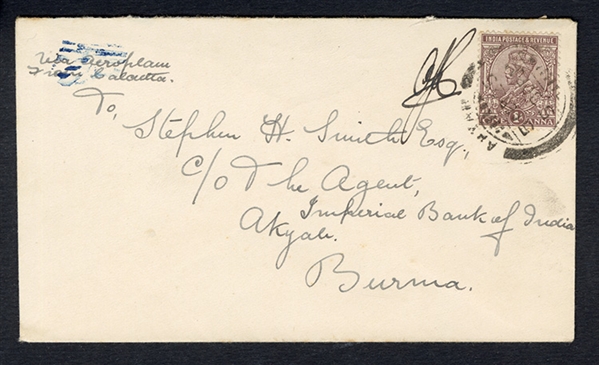 Via Aeroplane
From Calcutta.
INDIA POSTAGE & REVENUE
To,
Stephen H. Smith Esq.,
C/o The Agent,
Imperial Bank of India
Akyab.
Burma.
AKYAB
1
ANNA